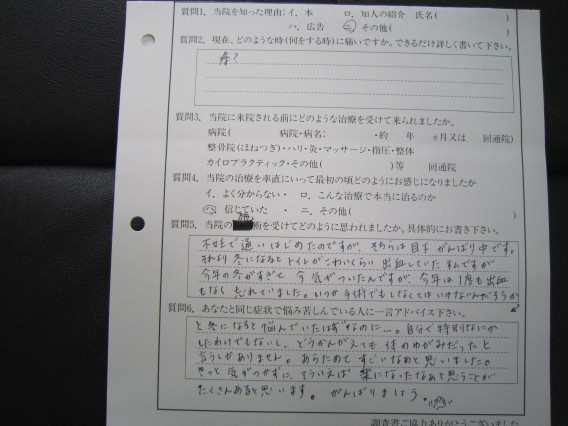 質問1. 当院を知った理由:イ. 本 ロ. 知人の紹介 氏名( )
ハ. 広告 ニ その他( )
質問2. 現在、どのような時(何をする時)に痛いですか。できるだけ詳しく書いて下さい。
質問3. 当院に来院される前にどのような治療を受けて来られましたか。
病院( 病院・病名: ・約 年 ヵ月又は 回通院)
整骨院(ほねつぎ)・ハリ・灸・マッサージ・指圧・整体
カイロプラクティック・その他( )等 回通院
質問4. 当院の治療を率直にいって最初の頃どのようにお感じになりましたか
イ. よく分からない・ ロ. こんな治療で本当に治るのか
ハ. 信じていた ・ ニ. その他( )
質問5. 当院の 施術を受けてどのように思われましたか。具体的にお書き下さい。
不妊で通いはじめたのですが、そちらは目下 がんばり中です。
それより冬になるとトイレがこわいくらい 出血していた私ですが
今年の冬がすぎて 今気がついたんですが、今年は1度も出血
もなく 忘れていました。いつか手術でもしなくてはいけないんだろうか
質問6. あなたと同じ症状で悩み苦しんでいる人に一言アドバイス下さい。
と冬になると悩んでいたはずなのに…。自分で特別なにか
したわけでもないし、どうかんがえても 体のゆがみだったと
言うしかありません。あらためて すごいなあと思いました。
きっと 気がつかずに、そういえば 楽になったなぁと思うことが
たくさんあると思います。 がんばりましょう。
調査書ご協力ありがとうございました